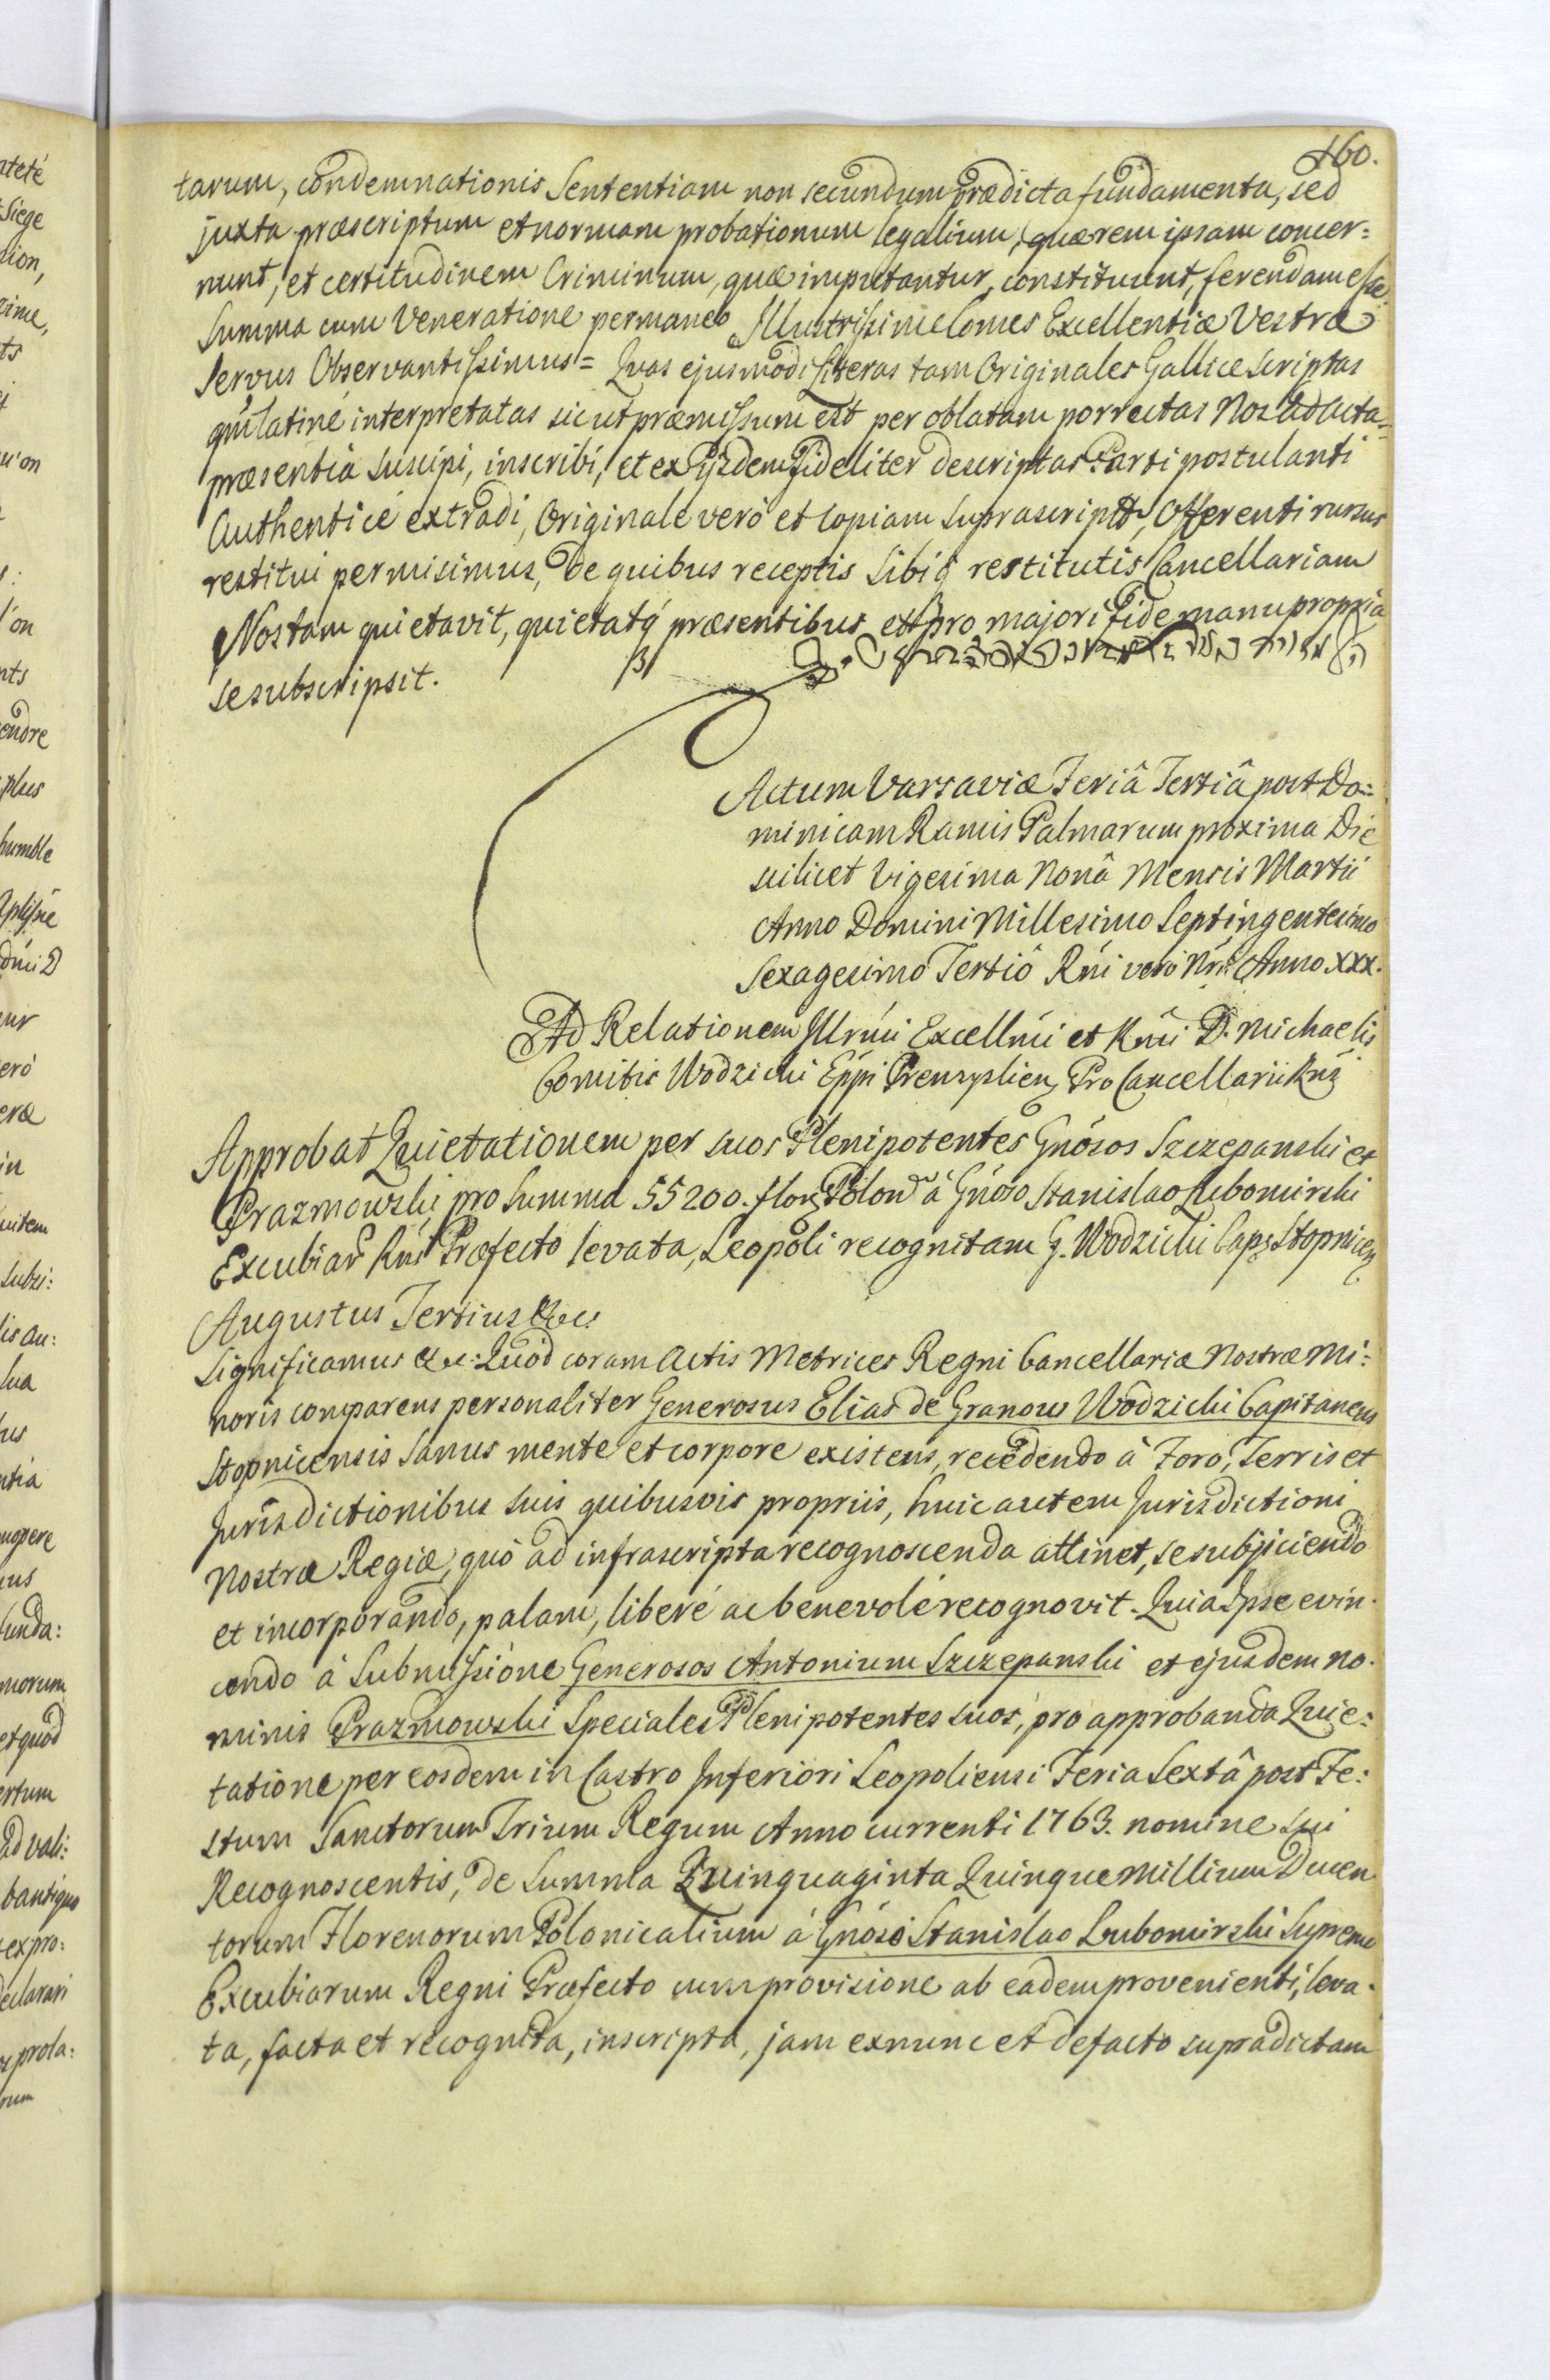 160.
tarum, condemnationis Sententiam non secundum prædicta fundamenta, sed
juxta præscriptum et normam probationum legalium, quæ rem ipsam concer=
nunt, et certitudinem Criminum, quæ imputantur, constituunt, ferendam esse.
Summa cum Veneratione permaneo Illustrissime Comes Excellentiæ Vestræ
Servus Observantissimus = Quas ejusmodi Literas tam Originales Gallice scriptas
qm latiné interpretatas sicut præmissum est per oblatam porrectas Nos ad Acta
præsentia suscipi, inscribi, et ex ijsdem fideliter descriptas Parti postulanti
Authenticé extradi, Originale veró et Copiam suprascript, Offerenti rursus
restitui permisimus, De quibus receptis sibiq restitutis Cancellariam
Nostam quietavit, quietatq præsentibus et pro majori fide manu propria
se subscripsit.
Actum Varsaviæ Feriâ Tertiâ post Do=
minicam Ramis Palmarum proxima Die
scilicet Vigesima Nonâ Mensis Martii
Anno Domini Millesimo Septingentesimo
Sexagesimo Tertiô Rni veró Nri Anno XXX.
Ad Relationem Illrmi Excellmi et Rmi D. Michaelis
Comitis Wodzicki Eppi Premyslien Pro Cancellarii Rni
Approbat Quietationem per suos Plenipotentes Gnósos Szczepanski et
Prazmowski pro Summa 55200. flor Polon á Gnóso Stanislao Lubomirski
Excubiar Rni Præfecto levata, Leopoli recognitam G. Wodzicki Cap Stopnicen
Augustus Tertius &c:
Significamus &c: Quód coram Actis Metrices Regni Cancellariæ Nostræ Mi=
noris comparens personaliter Generosus Elias de Granow Wodzicki Capitaneus
Stopnicensis sanus mente et corpore existens, recedendo á Foro, Terris et
Jurisdictionibus suis quibusvis propriis, huic autem Jurisdictioni
Nostræ Regiæ, quó ad infrascripta recognoscenda attinet, se subjiciendo
et incorporando, palam, liberé ac benevolé recognovit. Quia Ipse evin=
cendo á Submissione Generosos Antonium Szczepanski et ejusdem no=
minis Prazmowski Speciales Plenipotentes suos, pro approbanda Quie=
tatione per eosdem in Castro Inferiori Leopoliensi Feria Sextâ post Fe=
stum Sanctorum Trium Regum Anno currenti 1763. nomine sui
Recognoscentis, de Summa Quinquaginta Quinque Millium Ducen
torum Florenorum Polonicalium á Gnóso Stanislao Lubomirski Supremo
Excubiarum Regni Præfecto cum provisione ab eadem provenienti, leva=
ta, facta et recognita, inscripta, jam exnunc et defacto supradictam